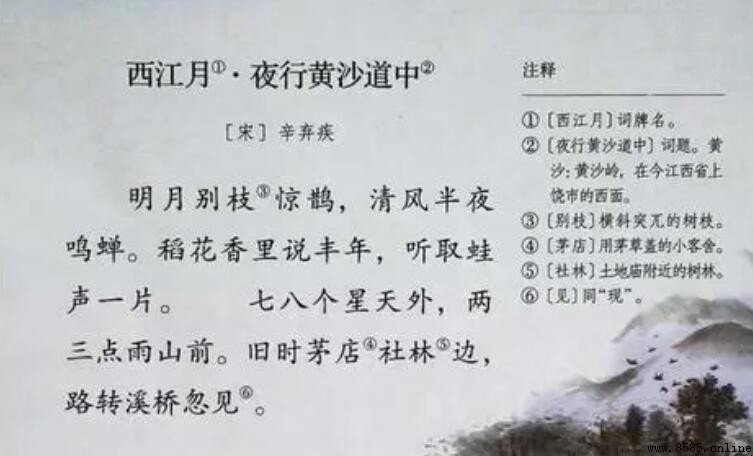 西江月①·夜行黄沙道中②
［宋］辛弃疾
明月别枝③惊鹊，清风半夜
鸣蝉。稻花香里说丰年，听取蛙
声一片。　　七八个星天外，两
三点雨山前。旧时茅店④社林⑤边，
路转溪桥忽见⑥。
注释
①［西江月］词牌名。
②［夜行黄沙道中］词题。黄
沙：黄沙岭，在今江西省上
饶市的西面。
③［别枝］横斜突兀的树枝。
④［茅店］用茅草盖的小客舍。
⑤［社林］土地庙附近的树林。
⑥［见］同“现”。
www.8585.online